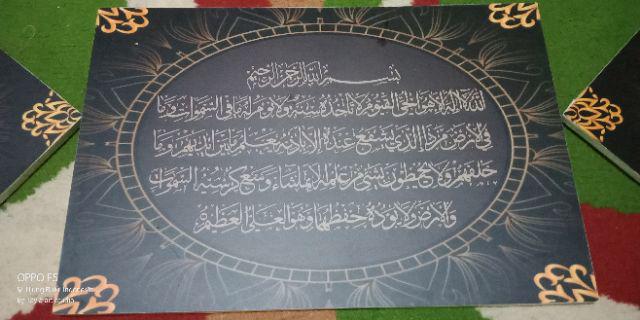 بسم الله الرحمن الرحيم
الله لا إله إلا هو الحي القيوم لا تأخذه سنة ولا نوم له ما في السموات وما
في الأرض من ذا الذي يشفع عنده إلا بإذنه يعلم ما بين أيديهم وما
خلفهم ولا يحيطون بشيء من علمه إلا بما شاء وسع كرسيه السموات
والأرض ولا يؤده حفظهما وهو العلي العظيم
OPPO F5